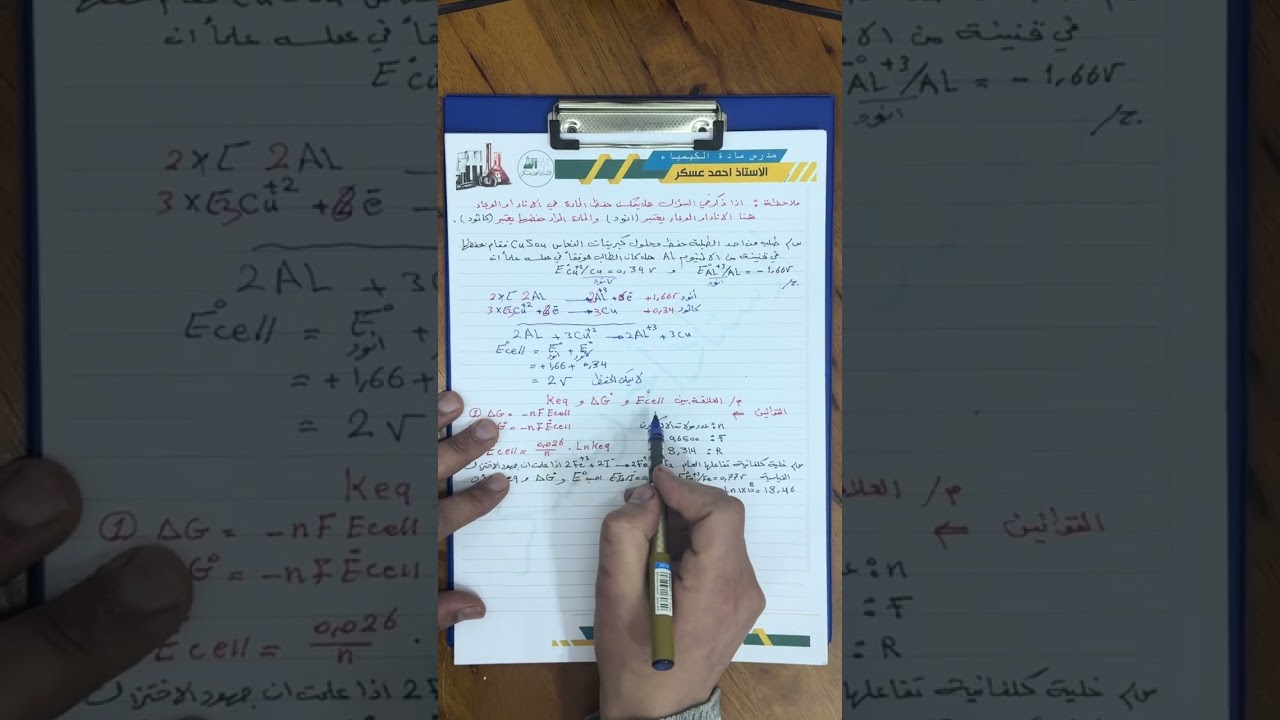 مدرس مادة الكيمياء
الاستاذ احمد عسكر
ملاحظة : اذا ذكر في السؤال هل يمكن حفظ المادة في الاناء او الوعاء
هنا الاناء او الوعاء يعتبر (انود) والمادة المراد حفضها يعتبر (كاثود).
س/ طلب من احد الطلبة حفظ محلول كبريتات النحاس CuSO4 فقام بحفظها
في قنينة من الالمنيوم AL هل كان الطالب موفقاً في عمله علماً انه
E°Cu+2/Cu = 0,34 v و E°AL+3/AL = - 1,66v
كاثود انود
ج/
2×[ 2AL → 2AL+3 + 6ē +1,66v أنود
3×[3Cu+2 + 2ē → 3Cu +0,34 كاثود
2AL + 3Cu+2 → 2AL+3 + 3Cu
E°cell = E° + E°
انود كاثود
= +1,66 + 0,34
= 2v لا يمكن الحفظ
م/ العلاقة بين E°cell و ΔG° و Keq
القوانين ⇐
① ΔG = -nF Ecell
G° = -nF E°cell
n:
96500 : F
Ecell = 0,026/n . Ln Keq
8,314 : R
س/ خلية كلفانية تفاعلها العام 2Fe+3 + 2I- → 2Fe اذا علمت ان جهود الاختزال
القياسية /Fe = 0,77v E°I2/I = 0, احسب E° و ΔG° و
Ln 1×10^8 = 18,46